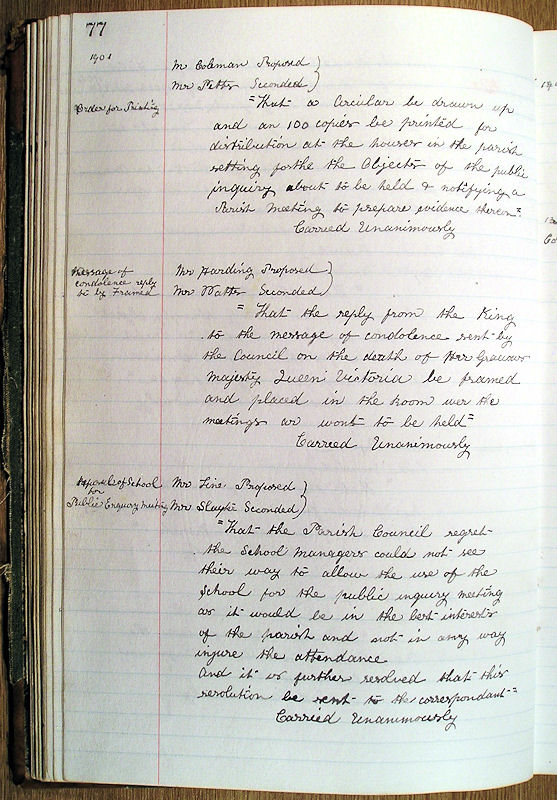 77
1901
Mr Coleman Proposed
Mr Petts Seconded
Order for Printing
"That a Circular be drawn up
and an 100 copies be printed for
distribution at the houses in the parish
setting forthe the Objects of the public
inquiry about to be held & notifying a
Parish Meeting to prepare evidence thereon"
Carried Unanimously
Message of
condolence reply
to by Framed
Mr Harding Proposed
Mr Watts Seconded
"That the reply from the King
to the message of condolence sent by
the Council on the death of Her Gracious
Majesty Queen Victoria be framed
and placed in the Room were the
meetings are wont to be held"
Carried Unanimously
of School
for
Public Enquiry Meeting
Mr Line Proposed
Mr Seconded
"That the Parish Council regret
the School Managers could not see
their way to allow the use of the
School for the public inquiry meeting
as it would be in the best interests
of the parish and not in any way
injure the attendance
And it is further resolved that this
resolution be sent to the correspondant"
Carried Unanimously